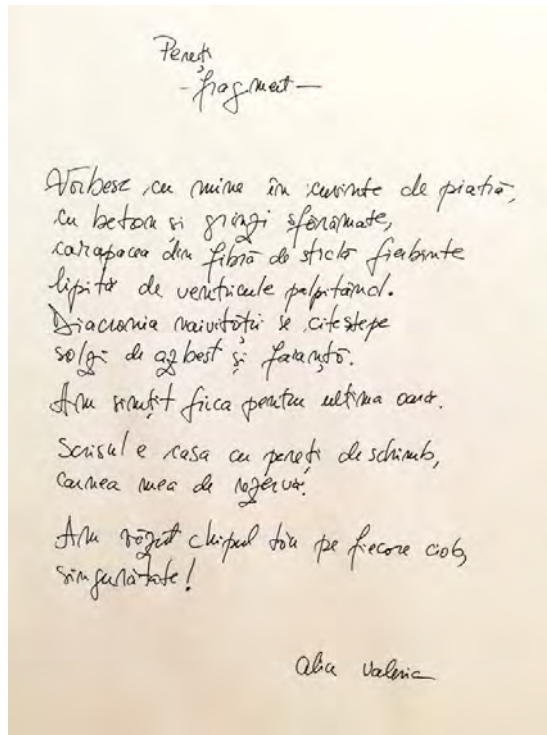 Pereți
- fragment -
Vorbesc cu mine în cuvinte de piatră,
cu beton și grinzi sfărâmate,
carapacea din fibră de sticlă fierbinte
lipită de ventricule palpitând.
Diacronia naivității se citește pe
solzi de azbest și faianță.
Am simțit frica pentru ultima oară.
Scrisul e casa cu pereți de schimb,
carnea mea de rezervă.
Am văzut chipul tău pe fiecare ciob,
singurătate!